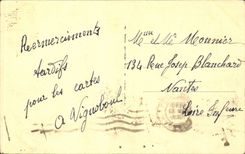 Remerciements
tardifs
pour les cartes
A Vignoboul
Mme et Mr Mounier
134 Rue Joseph Blanchard
Nantes
Loire Infre